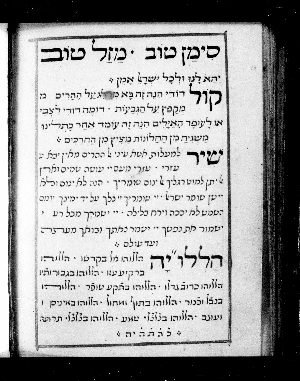 סימן טוב · מזל טוב
יהא לנו ולכל ישראל אמן
קול דודי הנה זה בא מדלג על ההרים
מקפץ על הגבעות · דומה דודי לצבי
או לעופר האילים הנה זה עומד אחר כתלינו
משגיח מן החלונות מציץ מן החרכים
שיר למעלות אשא עיני אל ההרים מאין יבא
עזרי · עזרי מעם יי עושה שמים וארץ
אל יתן למוט רגליך אל ינום שומריך · הנה לא ינום ולא
יישן שומר ישראל · יי שומריך יי צלך על יד ימינך יומם
השמש לא יככה וירח בלילה · יי ישמריך מכל רע
ישמור את נפשך · יי ישמר צאתך ובואך מעתה
ועד עולם
הללויה הללו אל בקדשו · הללוהו
ברקיע עזו · הללוהו בגבורותיו
הללוהו כרוב גדלו · הללוהו בתקע שופר · הללוהו
בנבל וכנור · הללוהו בתוף ומחול · הללוהו במינים
ועוגב · הללוהו בצלצלי שמע · הללוהו בצלצלי תרועה